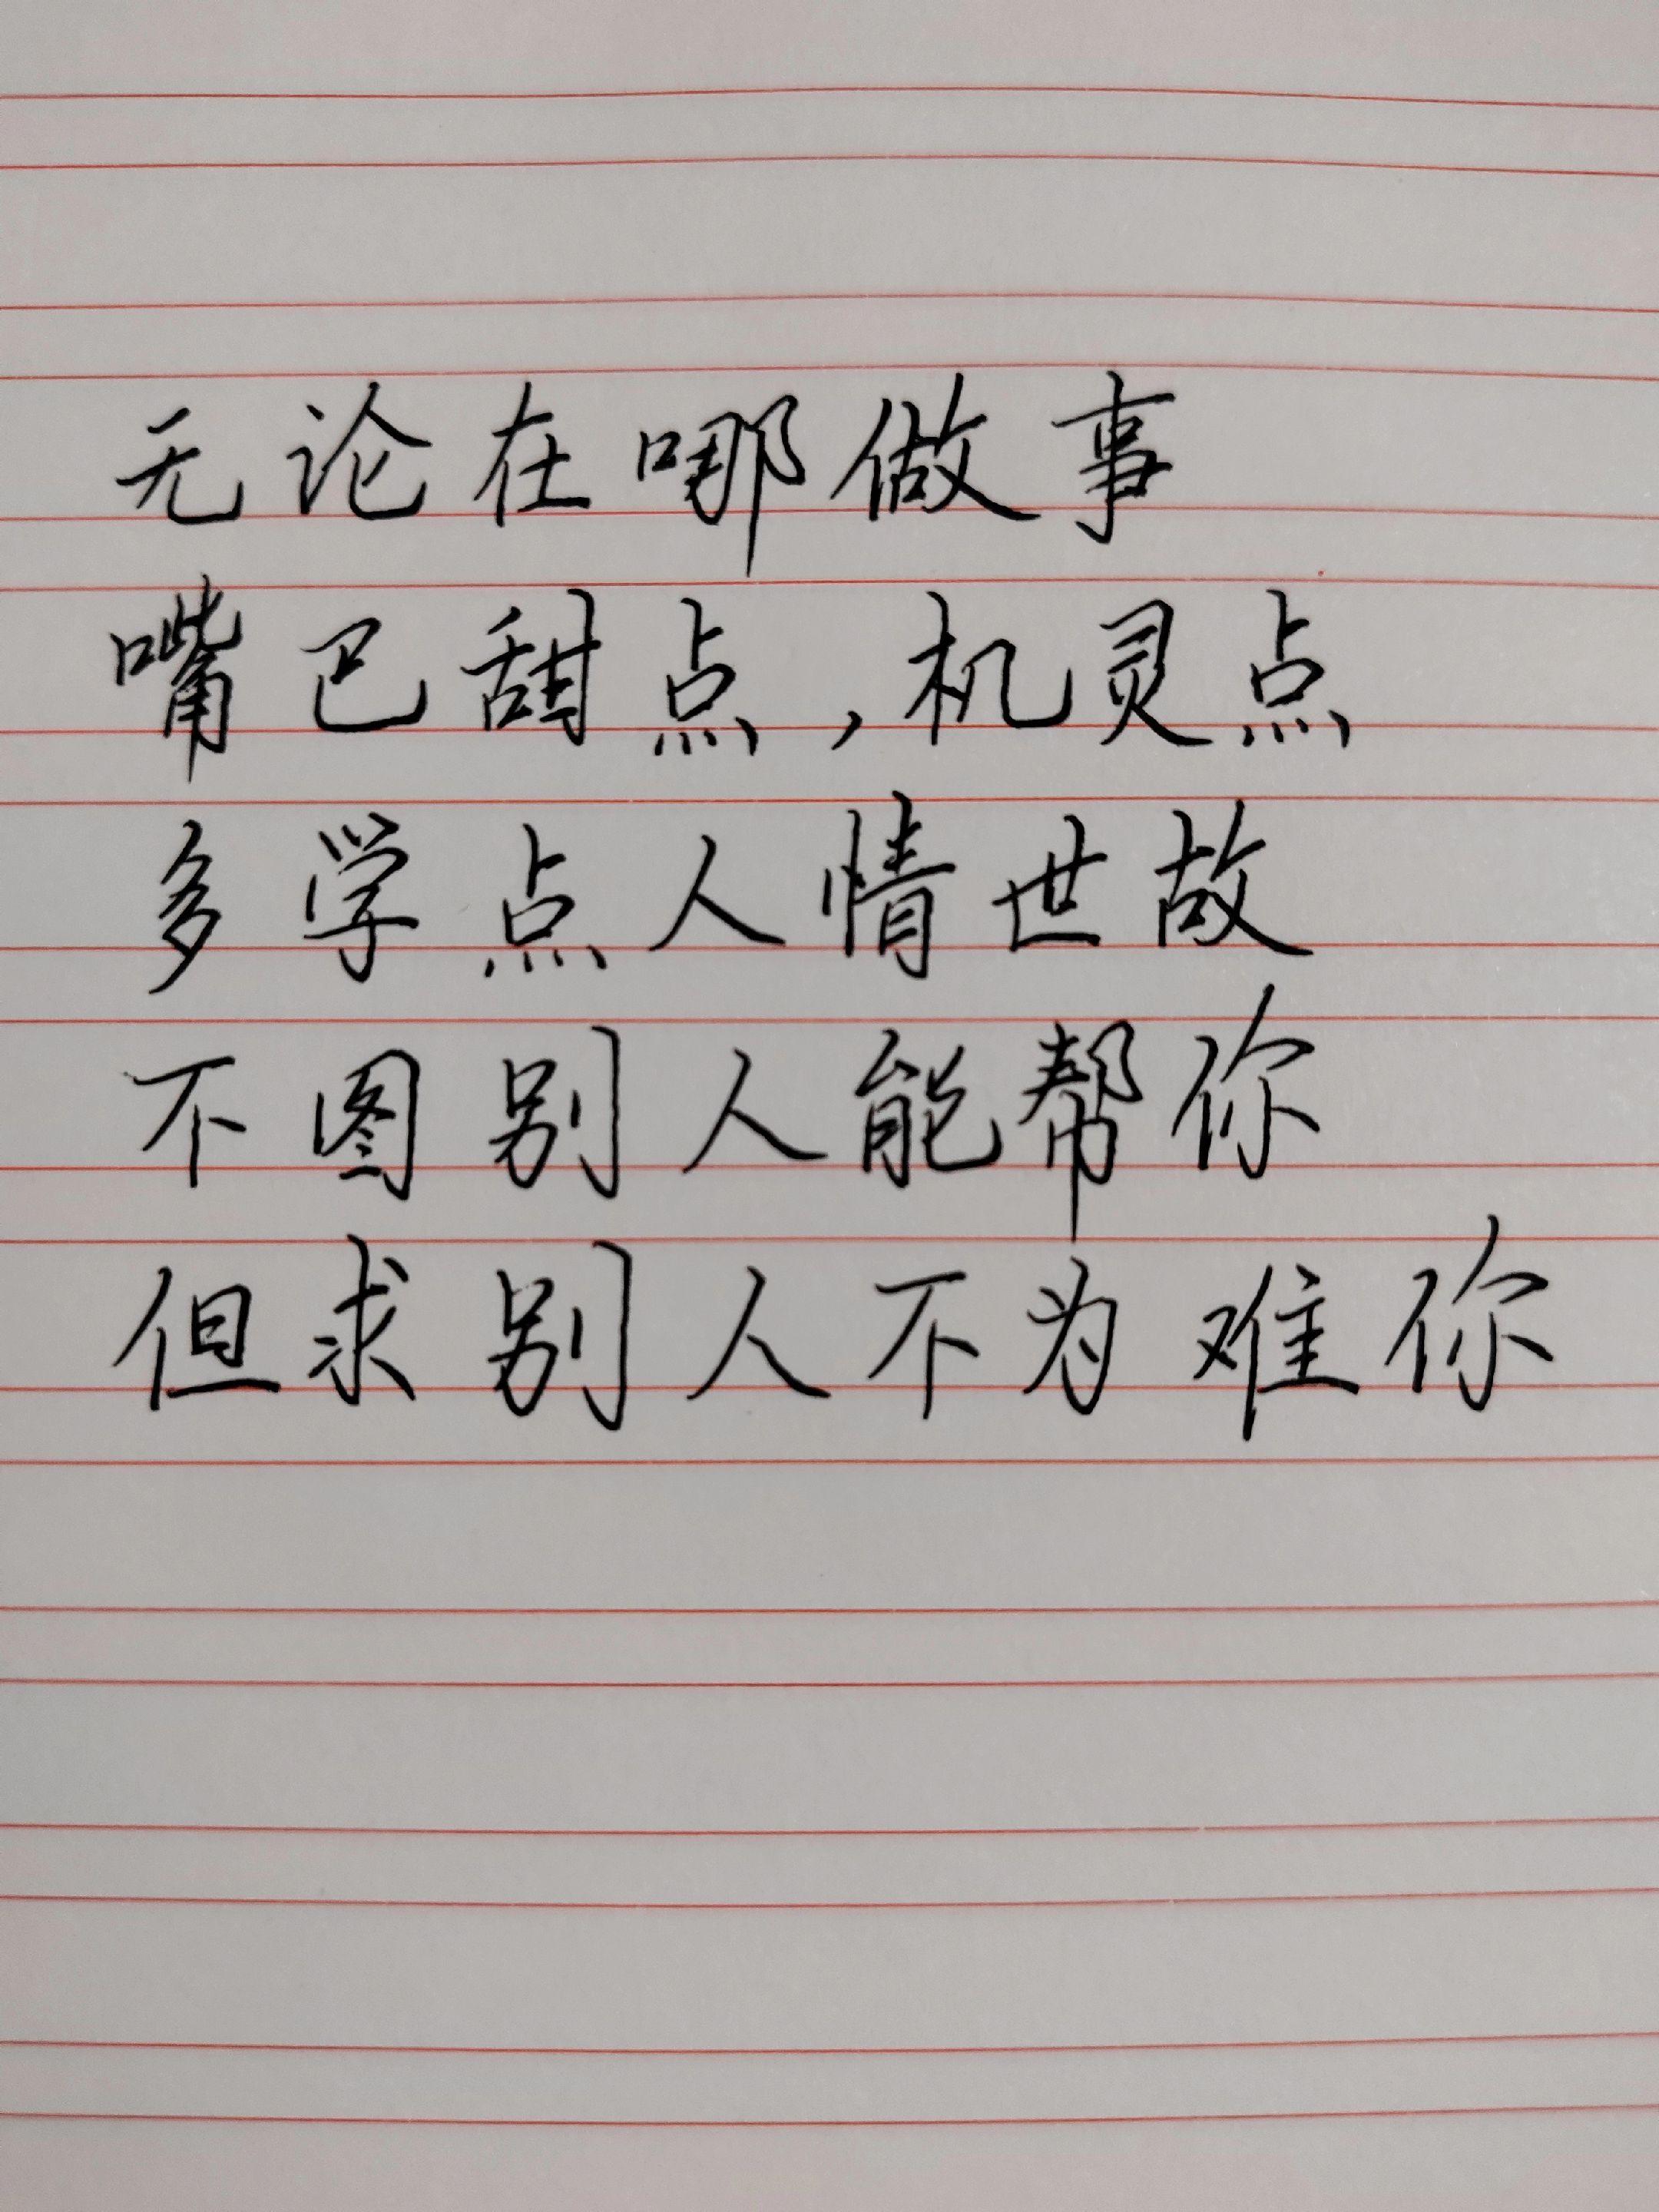 无论在哪做事
嘴巴甜点,机灵点
多学点人情世故
不图别人能帮你
但求别人不为难你